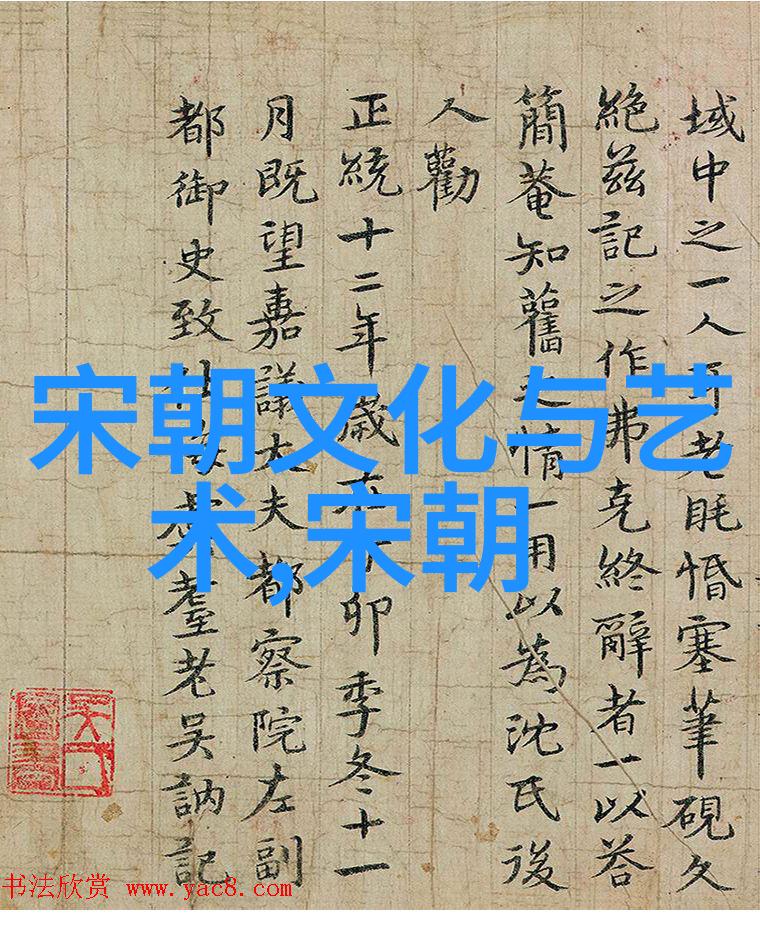 域中之一人耳老眊惛塞筆硯久
絶兹記之作弗克終辭者一以荅
簡菴知舊之情一用以為沈氏後
人勸
正統十二年歲在丁卯季冬十一
月既望嘉議大夫都察院左副
都御史致仕耋老吳訥記
宋朝文化与艺
术,宋朝
书法欣赏 www.yac8.com